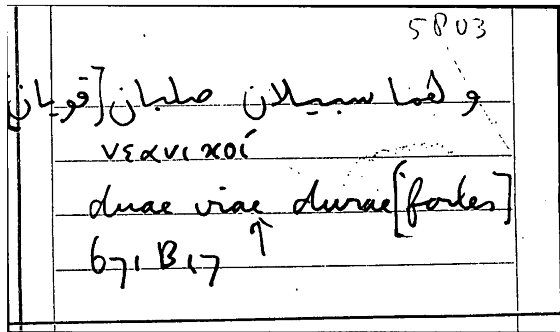 5803
و هما سبيلان صلبان [قويان]
νεανικοί
duae viae durae [fortes]
↑
671 B 17